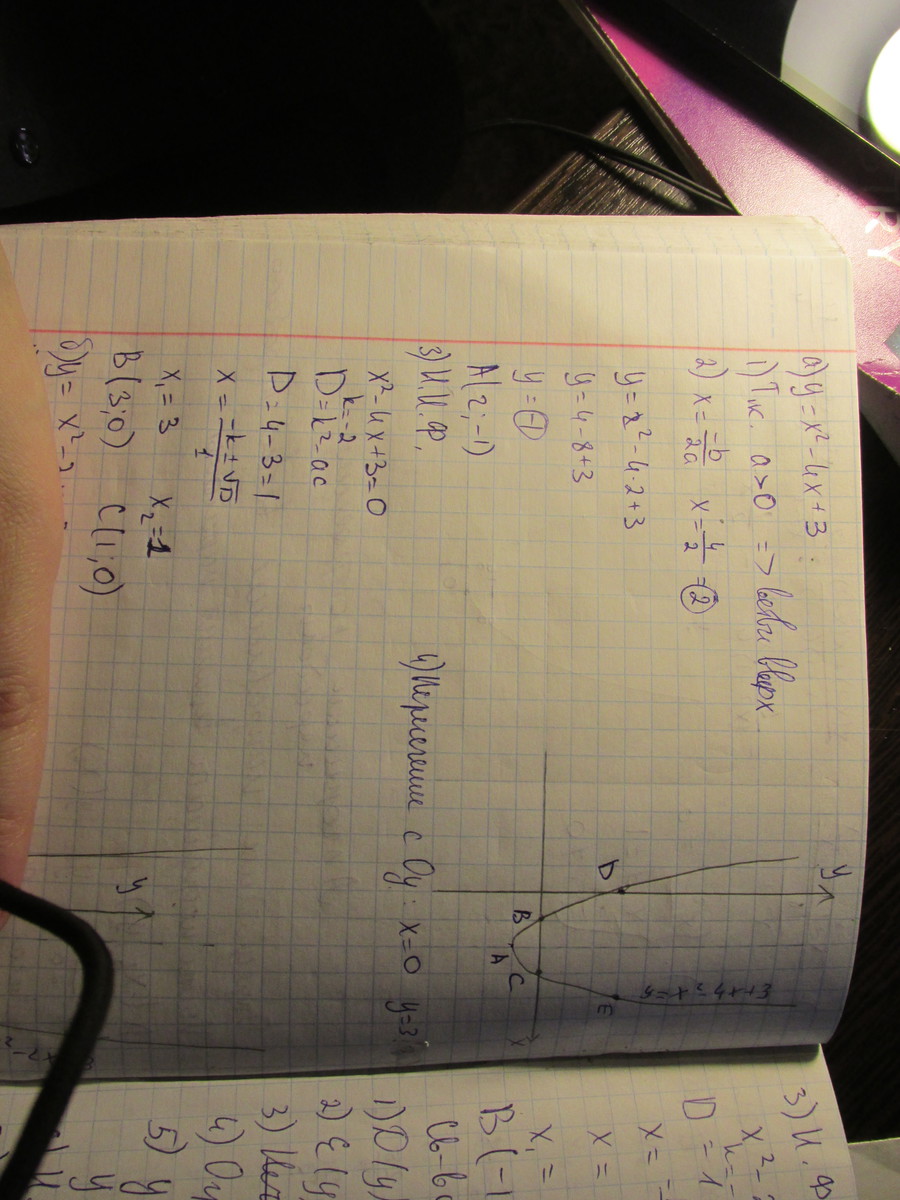 а) y = x² - 4x + 3 :
1) Т.к. a>0 => ветви вверх
2) x = -b/2a x = 4/2 = 2
y = 2² - 4·2+3
y = 4-8+3
y = -1
A(2; -1)
3) Н.Ф.
x² - 4x + 3 = 0
k = -2
D = k² - ac
D = 4 - 3 = 1
x = -k ± √D / 1
x₁ = 3 x₂ = 1
B(3; 0) C(1; 0)
4) Пересечение с Oy: x=0 y=3
y
D
B
A
C
E
y=x²-4x+3
x
б) y = x² - 2
y
3) Н. Ф
x² -
D = 1
x =
x =
x₁ =
B(-1
Св-ва
1) D(y)
2) E(y
3)
4) Oy
5) y
y
RY